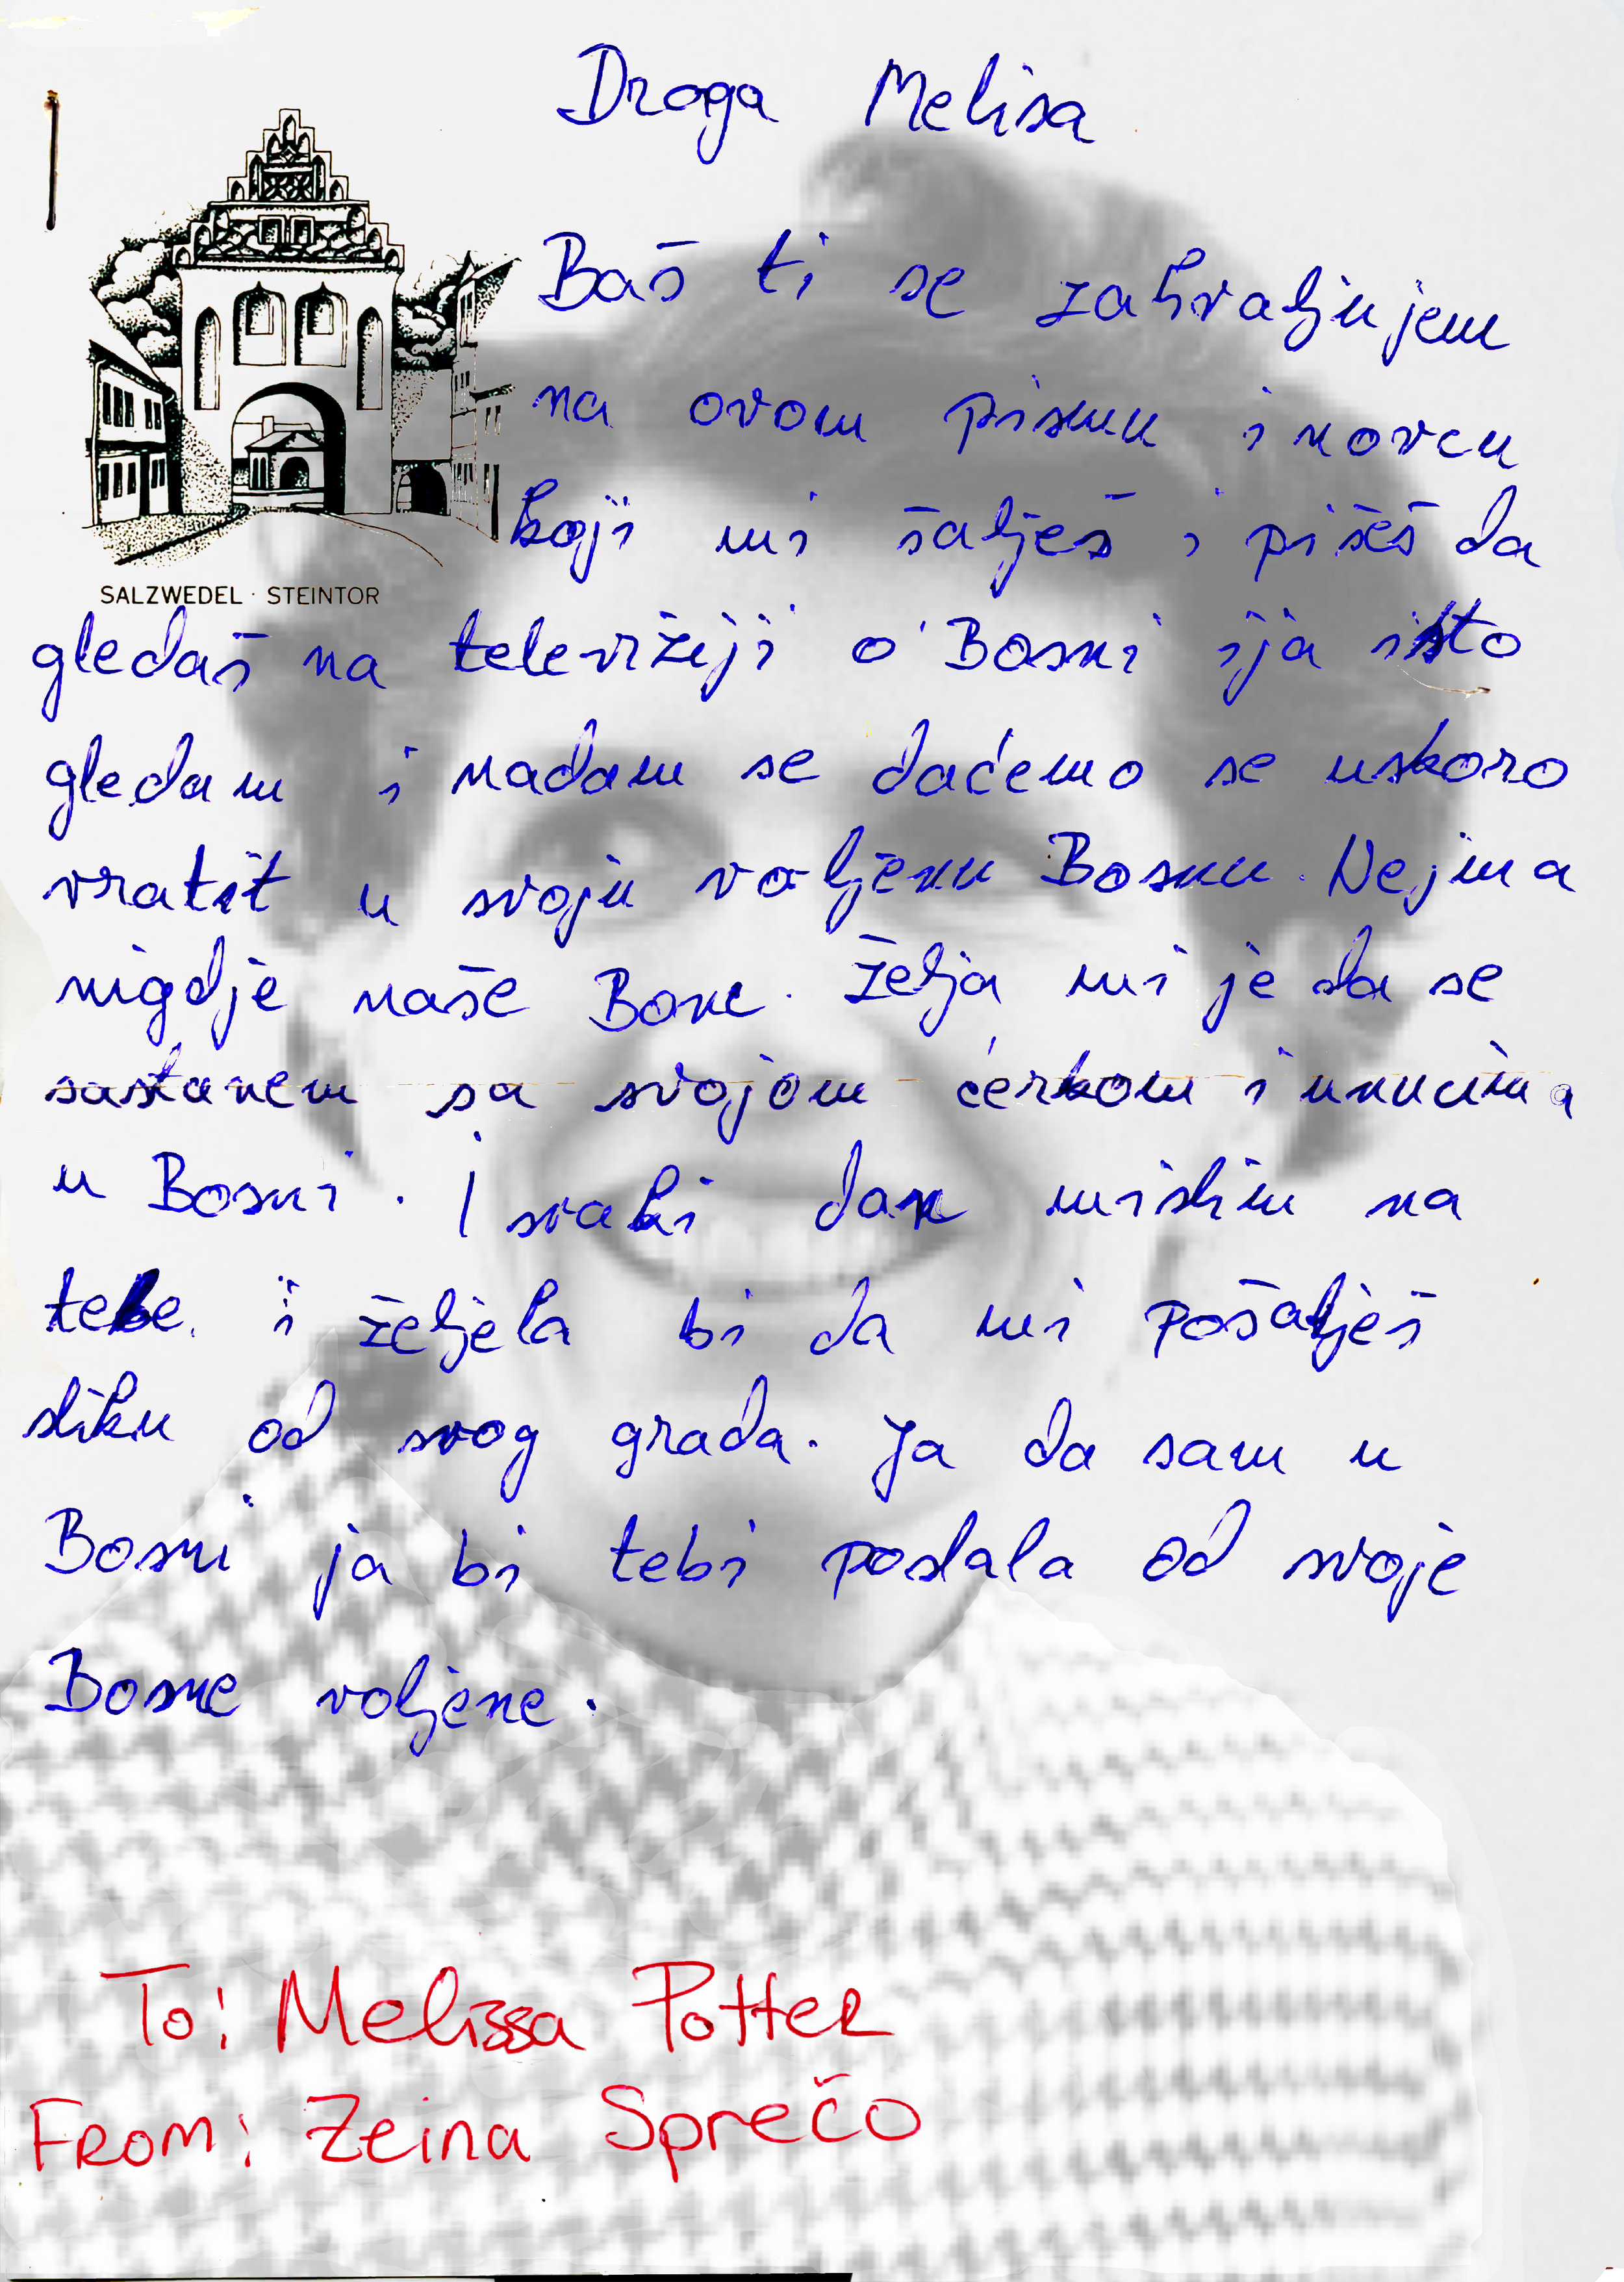 Droga Melisa
Baš ti se zahvaljujem
na ovom pismu i novcu
koji mi šalješ i pišeš da
SALZWEDEL · STEINTOR
gledaš na televižiji o Bosni i ja isto
gledam i nadam se daćemo se uskoro
vratit u svoju voljenu Bosnu. Nejma
nigdje naše Bone. Želja mi je da se
sastanem sa svojom ćerkom i unucima
u Bosni. I svaki dan mislim na
tebe. i željela bi da mi pošalješ
sliku od svog grada. Ja da sam u
Bosni ja bi tebi poslala od svoje
Bosne voljene.
To: Melissa Potter
From: Zeina Sprečo